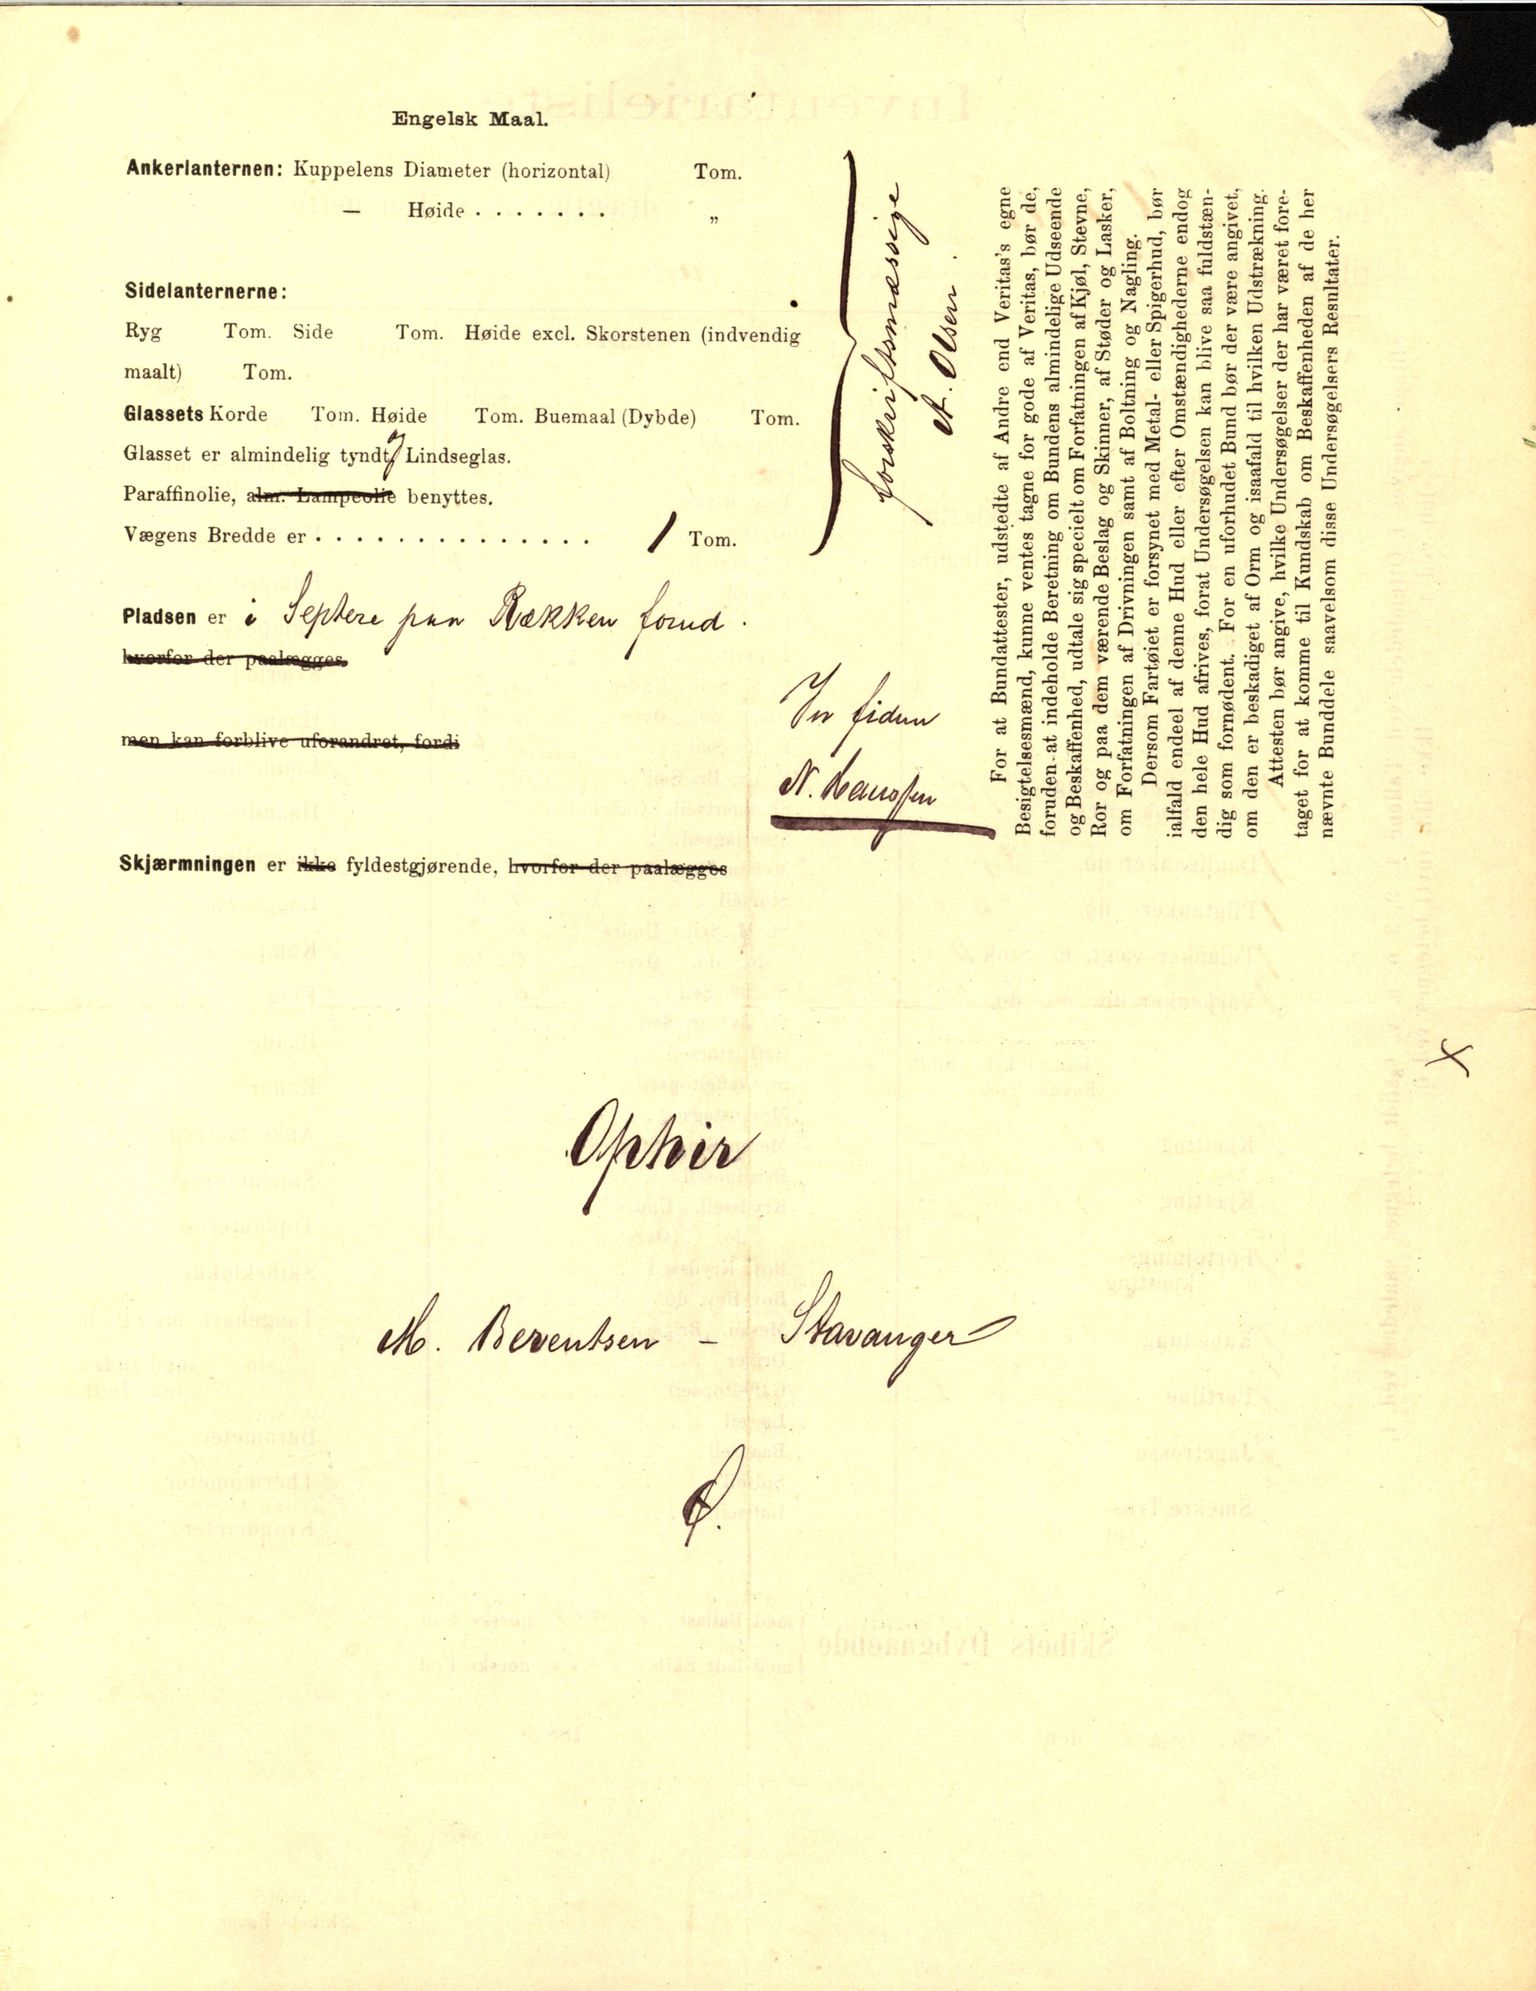 Engelsk Maal.
Ankerlanternen: Kuppelens Diameter (horizontal) Tom.
— Høide . . . . . . . „
Sidelanternerne:
Ryg Tom. Side Tom. Høide excl. Skorstenen (indvendig
maalt) Tom.
Glassets Korde Tom. Høide Tom. Buemaal (Dybde) Tom.
Glasset er almindelig tyndt og Lindseglas.
Paraffinolie, alm. Lampeolie benyttes.
Vægens Bredde er . . . . . . . . . . . . . . 1 Tom.
forskriftsmæssige
A. Olsen.
Pladsen er i Septere paa Rækken forud.
hvorfor der paalægges.
men kan forblive uforandret, fordi
Skjærmningen er ikke fyldestgjørende, hvorfor der paalægges
In fidem
N. Hanssen
For at Bundattester, udstedte af Andre end Veritas's egne
Besigtelsesmænd, kunne ventes tagne for gode af Veritas, bør de,
foruden at indeholde Beretning om Bundens almindelige Udseende
og Beskaffenhed, udtale sig specielt om Forfatningen af Kjøl, Stevne,
Ror og paa dem værende Beslag og Skinner, af Støder og Lasker,
om Forfatningen af Drivningen samt af Boltning og Nagling.
Dersom Fartøiet er forsynet med Metal- eller Spigerhud, bør
ialfald endeel af denne Hud eller efter Omstændighederne endog
den hele Hud afrives, forat Undersøgelsen kan blive saa fuldstæn-
dig som fornødent. For en uforhudet Bund bør der være angivet,
om den er beskadiget af Orm og isaafald til hvilken Udstrækning.
Attesten bør angive, hvilke Undersøgelser der har været fore-
taget for at komme til Kundskab om Beskaffenheden af de her
nævnte Bunddele saavelsom disse Undersøgelsers Resultater.
X
Ophir
M. Berentsen - Stavanger